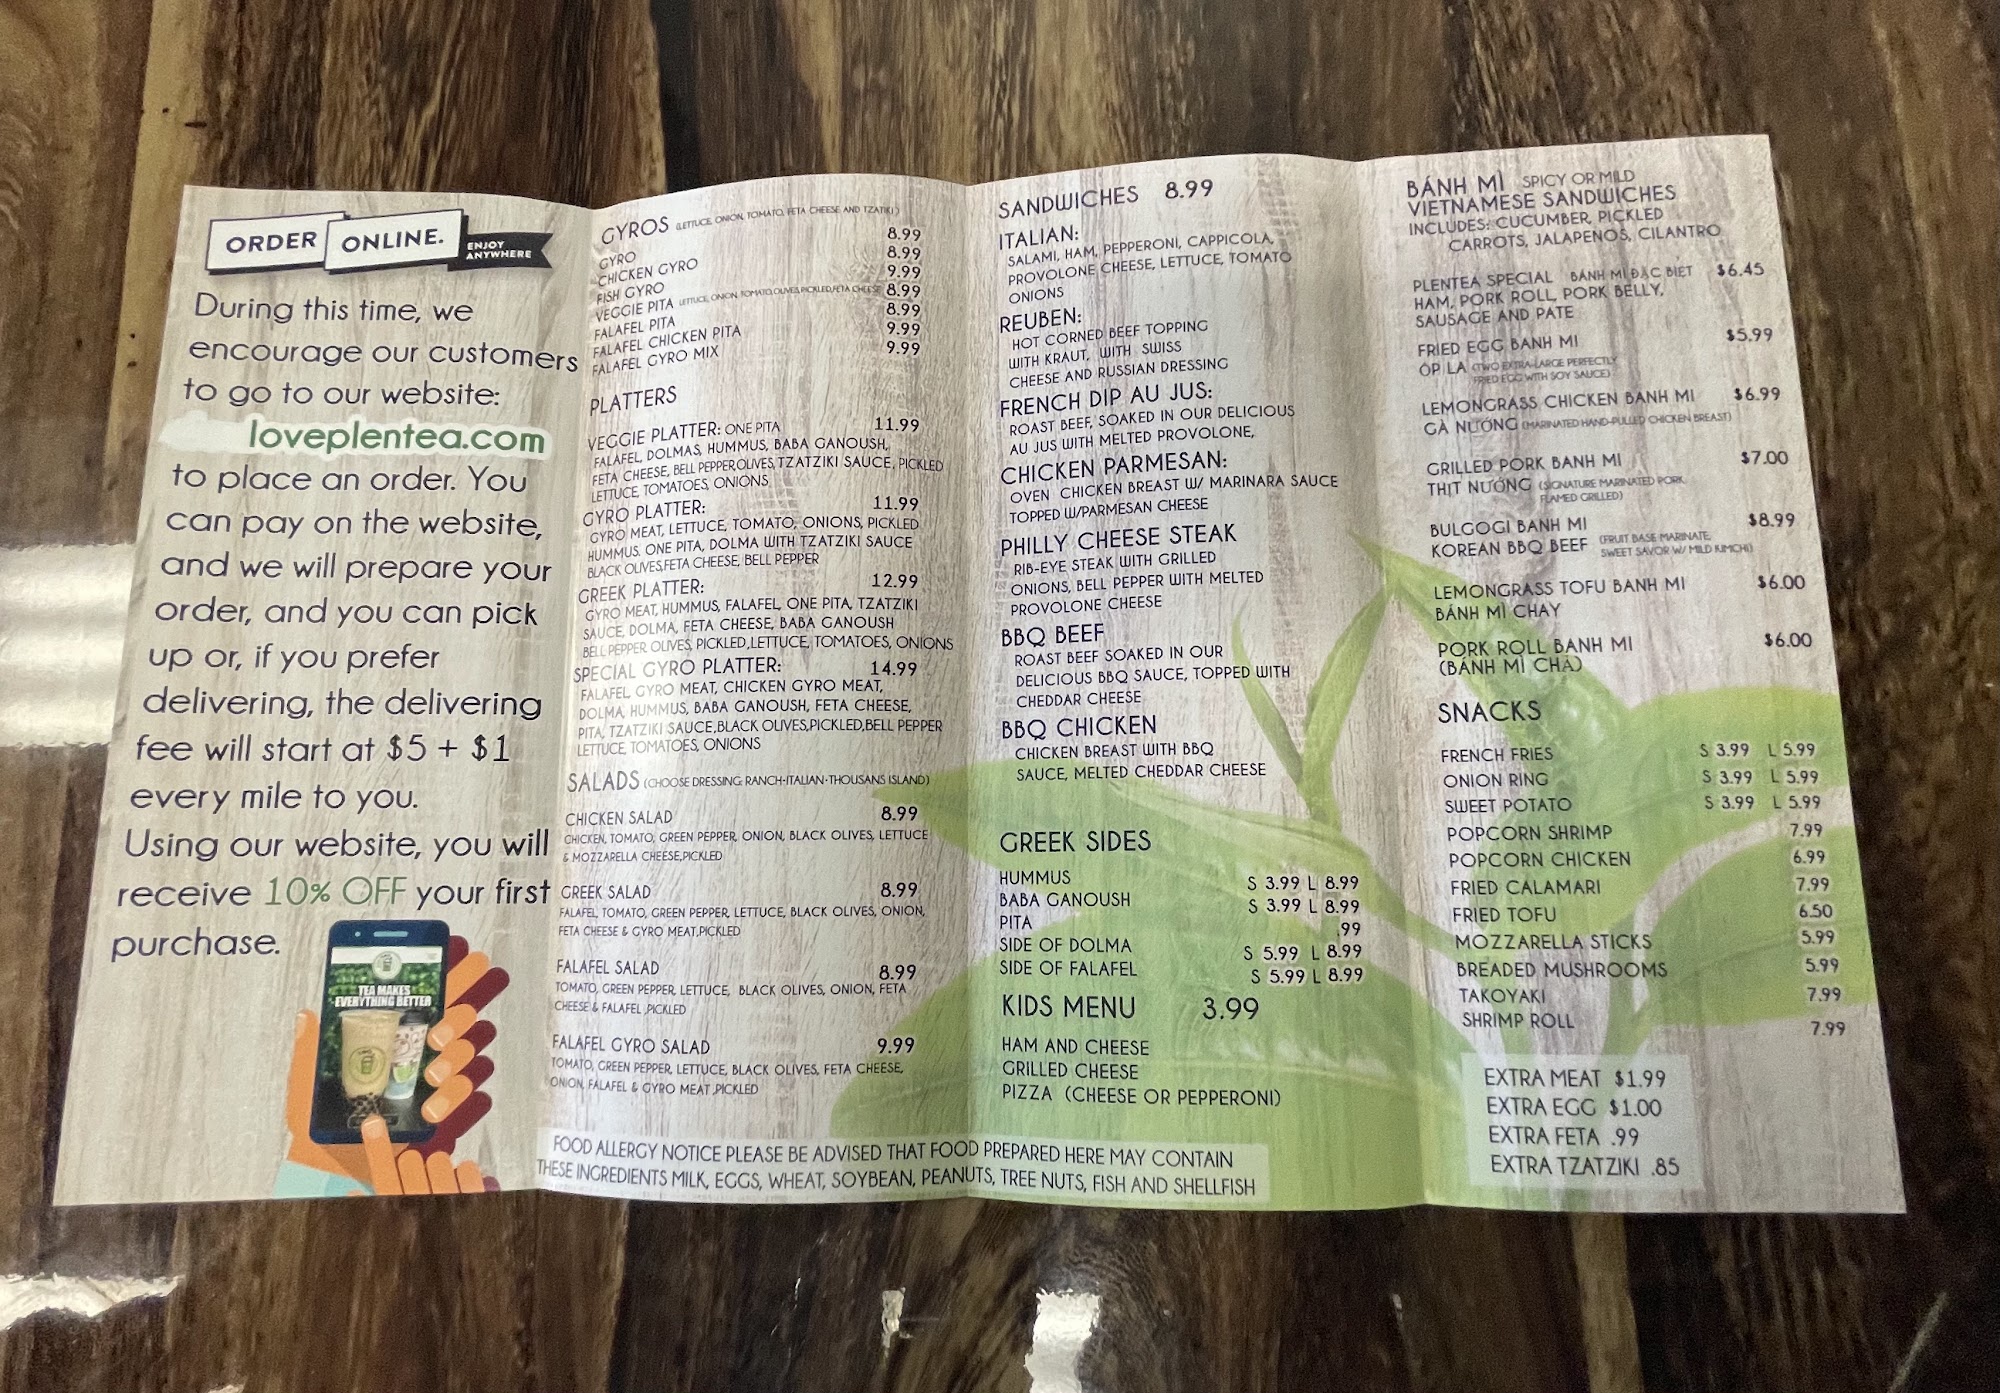 ORDER ONLINE. ENJOY ANYWHERE
During this time, we
encourage our customers
to go to our website:
loveplentea.com
to place an order. You
can pay on the website,
and we will prepare your
order, and you can pick
up or, if you prefer
delivering, the delivering
fee will start at $5 + $1
every mile to you.
Using our website, you will
receive 10% OFF your first
purchase.
TEA MAKES
EVERYTHING BETTER
GYROS (LETTUCE, ONION, TOMATO, FETA CHEESE AND TZATIKI)
GYRO 8.99
CHICKEN GYRO 8.99
FISH GYRO 9.99
VEGGIE PITA LETTUCE, ONION, TOMATO,OLIVES,PICKLED,FETA CHEESE 8.99
FALAFEL PITA 8.99
FALAFEL CHICKEN PITA 9.99
FALAFEL GYRO MIX 9.99
PLATTERS
VEGGIE PLATTER: ONE PITA 11.99
FALAFEL, DOLMAS, HUMMUS, BABA GANOUSH,
FETA CHEESE, BELL PEPPER,OLIVES,TZATZIKI SAUCE, PICKLED
LETTUCE, TOMATOES, ONIONS
GYRO PLATTER: 11.99
GYRO MEAT, LETTUCE, TOMATO, ONIONS, PICKLED
HUMMUS. ONE PITA, DOLMA WITH TZATZIKI SAUCE
BLACK OLIVES,FETA CHEESE, BELL PEPPER
GREEK PLATTER: 12.99
GYRO MEAT, HUMMUS, FALAFEL, ONE PITA, TZATZIKI
SAUCE, DOLMA, FETA CHEESE, BABA GANOUSH
BELL PEPPER OLIVES, PICKLED,LETTUCE, TOMATOES, ONIONS
SPECIAL GYRO PLATTER: 14.99
FALAFEL GYRO MEAT, CHICKEN GYRO MEAT,
DOLMA, HUMMUS, BABA GANOUSH, FETA CHEESE,
PITA, TZATZIKI SAUCE,BLACK OLIVES,PICKLED,BELL PEPPER
LETTUCE, TOMATOES, ONIONS
SALADS (CHOOSE DRESSING: RANCH-ITALIAN-THOUSANS ISLAND)
CHICKEN SALAD 8.99
CHICKEN, TOMATO, GREEN PEPPER, ONION, BLACK OLIVES, LETTUCE
& MOZZARELLA CHEESE,PICKLED
GREEK SALAD 8.99
FALAFEL, TOMATO, GREEN PEPPER, LETTUCE, BLACK OLIVES, ONION,
FETA CHEESE & GYRO MEAT,PICKLED
FALAFEL SALAD 8.99
TOMATO, GREEN PEPPER, LETTUCE, BLACK OLIVES, ONION, FETA
CHEESE & FALAFEL ,PICKLED
FALAFEL GYRO SALAD 9.99
TOMATO, GREEN PEPPER, LETTUCE, BLACK OLIVES, FETA CHEESE,
ONION, FALAFEL & GYRO MEAT ,PICKLED
SANDWICHES 8.99
ITALIAN:
SALAMI, HAM, PEPPERONI, CAPPICOLA,
PROVOLONE CHEESE, LETTUCE, TOMATO
ONIONS
REUBEN:
HOT CORNED BEEF TOPPING
WITH KRAUT, WITH SWISS
CHEESE AND RUSSIAN DRESSING
FRENCH DIP AU JUS:
ROAST BEEF, SOAKED IN OUR DELICIOUS
AU JUS WITH MELTED PROVOLONE,
CHICKEN PARMESAN:
OVEN CHICKEN BREAST W/ MARINARA SAUCE
TOPPED W/PARMESAN CHEESE
PHILLY CHEESE STEAK
RIB-EYE STEAK WITH GRILLED
ONIONS, BELL PEPPER WITH MELTED
PROVOLONE CHEESE
BBQ BEEF
ROAST BEEF SOAKED IN OUR
DELICIOUS BBQ SAUCE, TOPPED WITH
CHEDDAR CHEESE
BBQ CHICKEN
CHICKEN BREAST WITH BBQ
SAUCE, MELTED CHEDDAR CHEESE
GREEK SIDES
HUMMUS S 3.99 L 8.99
BABA GANOUSH S 3.99 L 8.99
PITA .99
SIDE OF DOLMA S 5.99 L 8.99
SIDE OF FALAFEL S 5.99 L 8.99
KIDS MENU 3.99
HAM AND CHEESE
GRILLED CHEESE
PIZZA (CHEESE OR PEPPERONI)
FOOD ALLERGY NOTICE PLEASE BE ADVISED THAT FOOD PREPARED HERE MAY CONTAIN
THESE INGREDIENTS MILK, EGGS, WHEAT, SOYBEAN, PEANUTS, TREE NUTS, FISH AND SHELLFISH
BÁNH MÌ SPICY OR MILD
VIETNAMESE SANDWICHES
INCLUDES: CUCUMBER, PICKLED
CARROTS, JALAPENOS, CILANTRO
PLENTEA SPECIAL BÁNH MÌ ĐẶC BIỆT $6.45
HAM, PORK ROLL, PORK BELLY,
SAUSAGE AND PATE
FRIED EGG BANH MI $5.99
ỐP LA (TWO EXTRA-LARGE PERFECTLY
FRIED EGG WITH SOY SAUCE)
LEMONGRASS CHICKEN BANH MI $6.99
GÀ NƯỚNG (MARINATED HAND-PULLED CHICKEN BREAST)
GRILLED PORK BANH MI $7.00
THỊT NƯỚNG (SIGNATURE MARINATED PORK,
FLAMED GRILLED)
BULGOGI BANH MI $8.99
KOREAN BBQ BEEF (FRUIT BASE MARINATE,
SWEET SAVOR W/ MILD KIMCHI)
LEMONGRASS TOFU BANH MI $6.00
BÁNH MÌ CHAY
PORK ROLL BANH MI $6.00
(BÁNH MÌ CHẢ)
SNACKS
FRENCH FRIES S 3.99 L 5.99
ONION RING S 3.99 L 5.99
SWEET POTATO S 3.99 L 5.99
POPCORN SHRIMP 7.99
POPCORN CHICKEN 6.99
FRIED CALAMARI 7.99
FRIED TOFU 6.50
MOZZARELLA STICKS 5.99
BREADED MUSHROOMS 5.99
TAKOYAKI 7.99
SHRIMP ROLL 7.99
EXTRA MEAT $1.99
EXTRA EGG $1.00
EXTRA FETA .99
EXTRA TZATZIKI .85